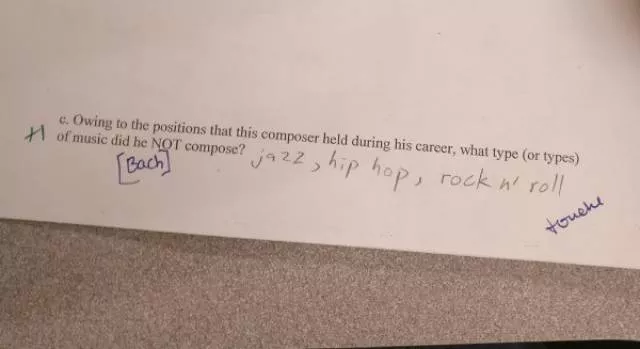 c. Owing to the positions that this composer held during his career, what type (or types)
+1 of music did he NOT compose? jazz, hip hop, rock n' roll
[Bach]
touche